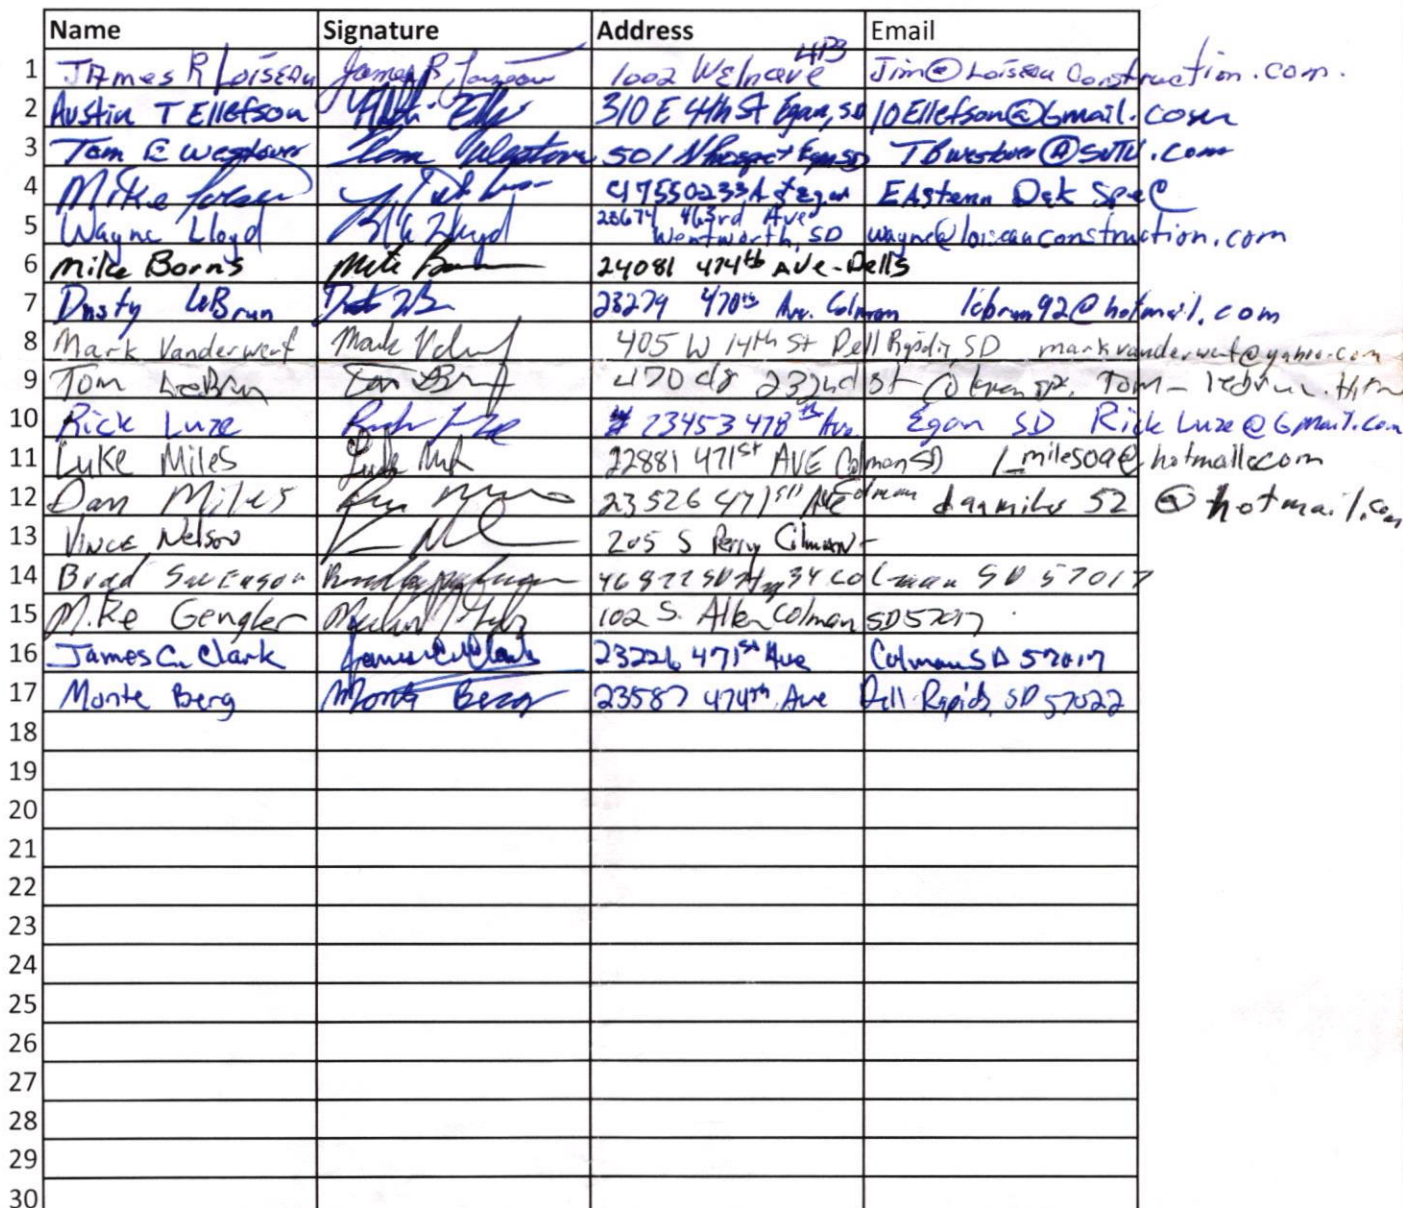 Name Signature Address Email
1 James R Loiseau James R Loiseau 1002 Jim@Loiseau Construction.com.
2 Austin T Ellefson 310 E 4th St Egan, SD 10Ellefson@Gmail.com
3 Tom E Westover Tom Westover 501 N Prospect Egan SD TBWestover@SVTV.com
4 Mike Egan Eastern Dak Spec
5 Wayne Lloyd 23674 463rd Ave Wentworth, SD wayne@loiseauconstruction.com
6 Mike Borns Mike 24081 474th Ave - Dells
7 Dusty LeBrun 23279 470th Ave. Colman lebrun92@hotmail.com
8 Mark Vanderwerf Mark 405 W 14th St Dell Rapids, SD markvanderwerf@yahoo.com
9 Tom LeBrun Tom 232nd St Colman
10 Rick Luze Rick Luze # 23453 478th Ave. Egan SD Rick Luze@Gmail.com
11 Luke Miles Luke 22881 471st AVE Colman SD l_miles09@hotmail.com
12 Dan Miles 23526 471st Ave Colman danmiles 52 @hotmail.com
13 Vince Nelson 205 S Perry Colman
14 Brad Swenson SD Hwy 34 Colman SD 57017
15 Mike Gengler 102 S. Allen Colman SD 57017
16 James C. Clark James C. Clark 23226 471st Ave Colman SD 57017
17 Monte Berg Monte Berg 23587 474th Ave Dell Rapids, SD 57022
18
19
20
21
22
23
24
25
26
27
28
29
30